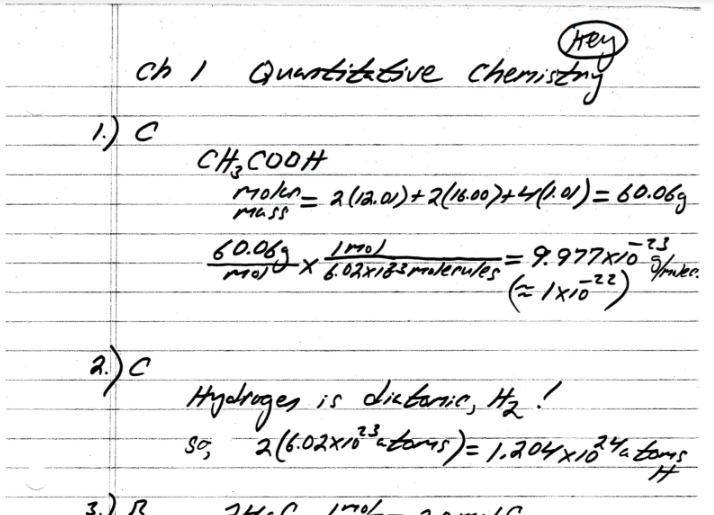 Key
Ch 1 Quantitative Chemistry
1.) C
CH₃COOH
molar mass = 2(12.01)+2(16.00)+4(1.01) = 60.06g
60.06g/mol × 1mol/6.02×10²³ molecules = 9.977×10⁻²³ g/molec.
(≈ 1×10⁻²²)
2.) C
Hydrogen is diatomic, H₂!
so, 2(6.02×10²³ atoms) = 1.204×10²⁴ atoms H
3.) B